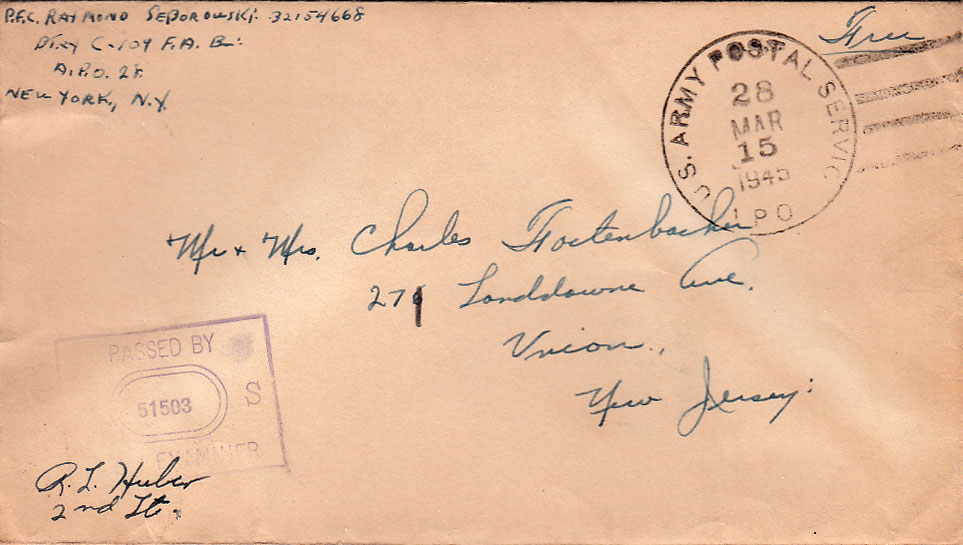 P.F.C. RAYMOND SEBOROWSKI. 32154668
Btry C-109 F.A. Bn:
A.P.O. 28
NEW YORK, N.Y.
Free
U.S. ARMY POSTAL SERVIC
28
MAR
15
1945
APO
Mr + Mrs. Charles
271 Landdowne Ave.
Union.,
New Jersey:
PASSED BY
S
51503
EXAMINER
R. L. Huber
2nd Lt.